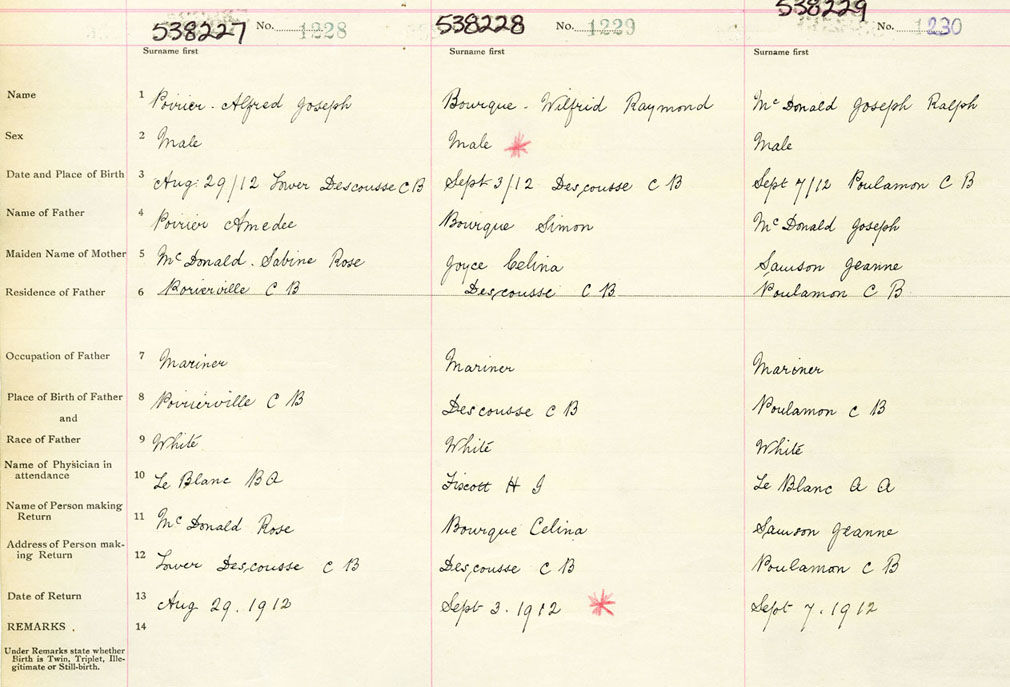 538227 No. 1228 538228 No. 1229 538229 No. 1230
Surname first Surname first Surname first
Name 1 Poirier - Alfred Joseph Bourque - Wilfrid Raymond McDonald Joseph Ralph
Sex 2 Male Male Male
Date and Place of Birth 3 Aug 29/12 Lower Descousse C B Sept 3/12 Descousse C B Sept 7/12 Poulamon C B
Name of Father 4 Poirier Amedee Bourque Simon McDonald Joseph
Maiden Name of Mother 5 McDonald. Sabine Rose Joyce Celina Samson Jeanne
Residence of Father 6 Porierville C B Descousse C B Poulamon C B
Occupation of Father 7 Mariner Mariner Mariner
Place of Birth of Father 8 Poirierville C B Descousse C B Poulamon C B
and
Race of Father 9 White White White
Name of Physician in
attendance 10 Le Blanc B A H Le Blanc A A
Name of Person making
Return 11 McDonald Rose Bourque Celina Samson Jeanne
Address of Person mak-
ing Return 12 Lower Descousse C B Descousse C B Poulamon C B
Date of Return 13 Aug 29. 1912 Sept 3. 1912 Sept 7. 1912
REMARKS . 14
Under Remarks state whether
Birth is Twin, Triplet, Ille-
gitimate or Still-birth.